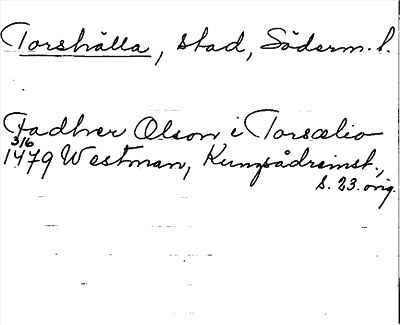 Torshälla, stad, Söderm. l.
Fadher Olson i Torsælio
3/6
1479 Westman, Kungsådreinst.,
s. 23. orig.